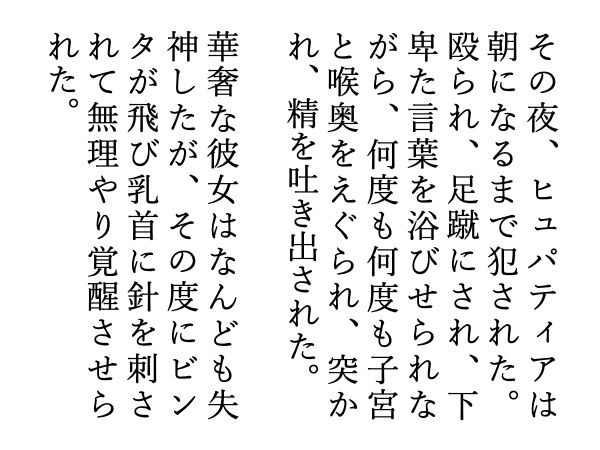 その夜、ヒュパティアは
朝になるまで犯された。
殴られ、足蹴にされ、下
卑た言葉を浴びせられな
がら、何度も何度も子宮
と喉奥をえぐられ、突か
れ、精を吐き出された。
華奢な彼女はなんども失
神したが、その度にビン
タが飛び乳首に針を刺さ
れて無理やり覚醒させら
れた。